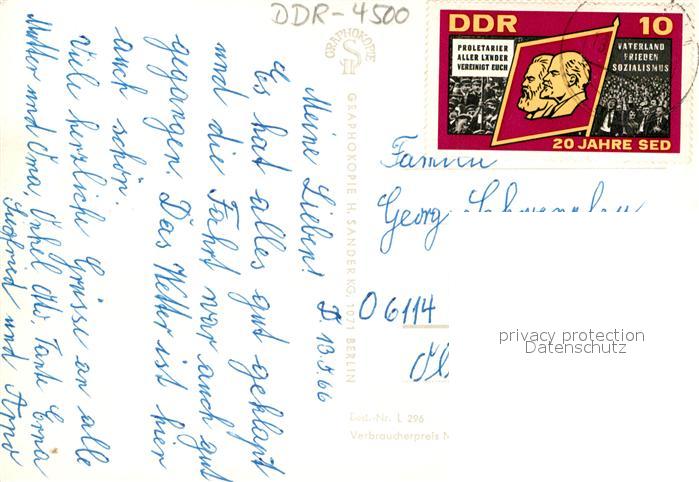 DDR-4500
DDR 10
PROLETARIER
ALLER LÄNDER
VEREINIGT EUCH
VATERLAND
FRIEDEN
SOZIALISMUS
20 JAHRE SED
GRAPHOKOPIE
H S
GRAPHOKOPIE H. SANDER KG, 1071 BERLIN
D. 13.5.66
Meine Lieben!
Es hat alles gut geklapt
und die Fahrt war auch gut
gegangen. Das Wetter ist hier
auch schön.
Viele herzliche Grüsse an alle
Mutter und Oma, Onkel Otto, Tante Erna
Siegfried und Arno
Georg
O 6114
Best.-Nr. L 296
Verbraucherpreis M
privacy protection
Datenschutz